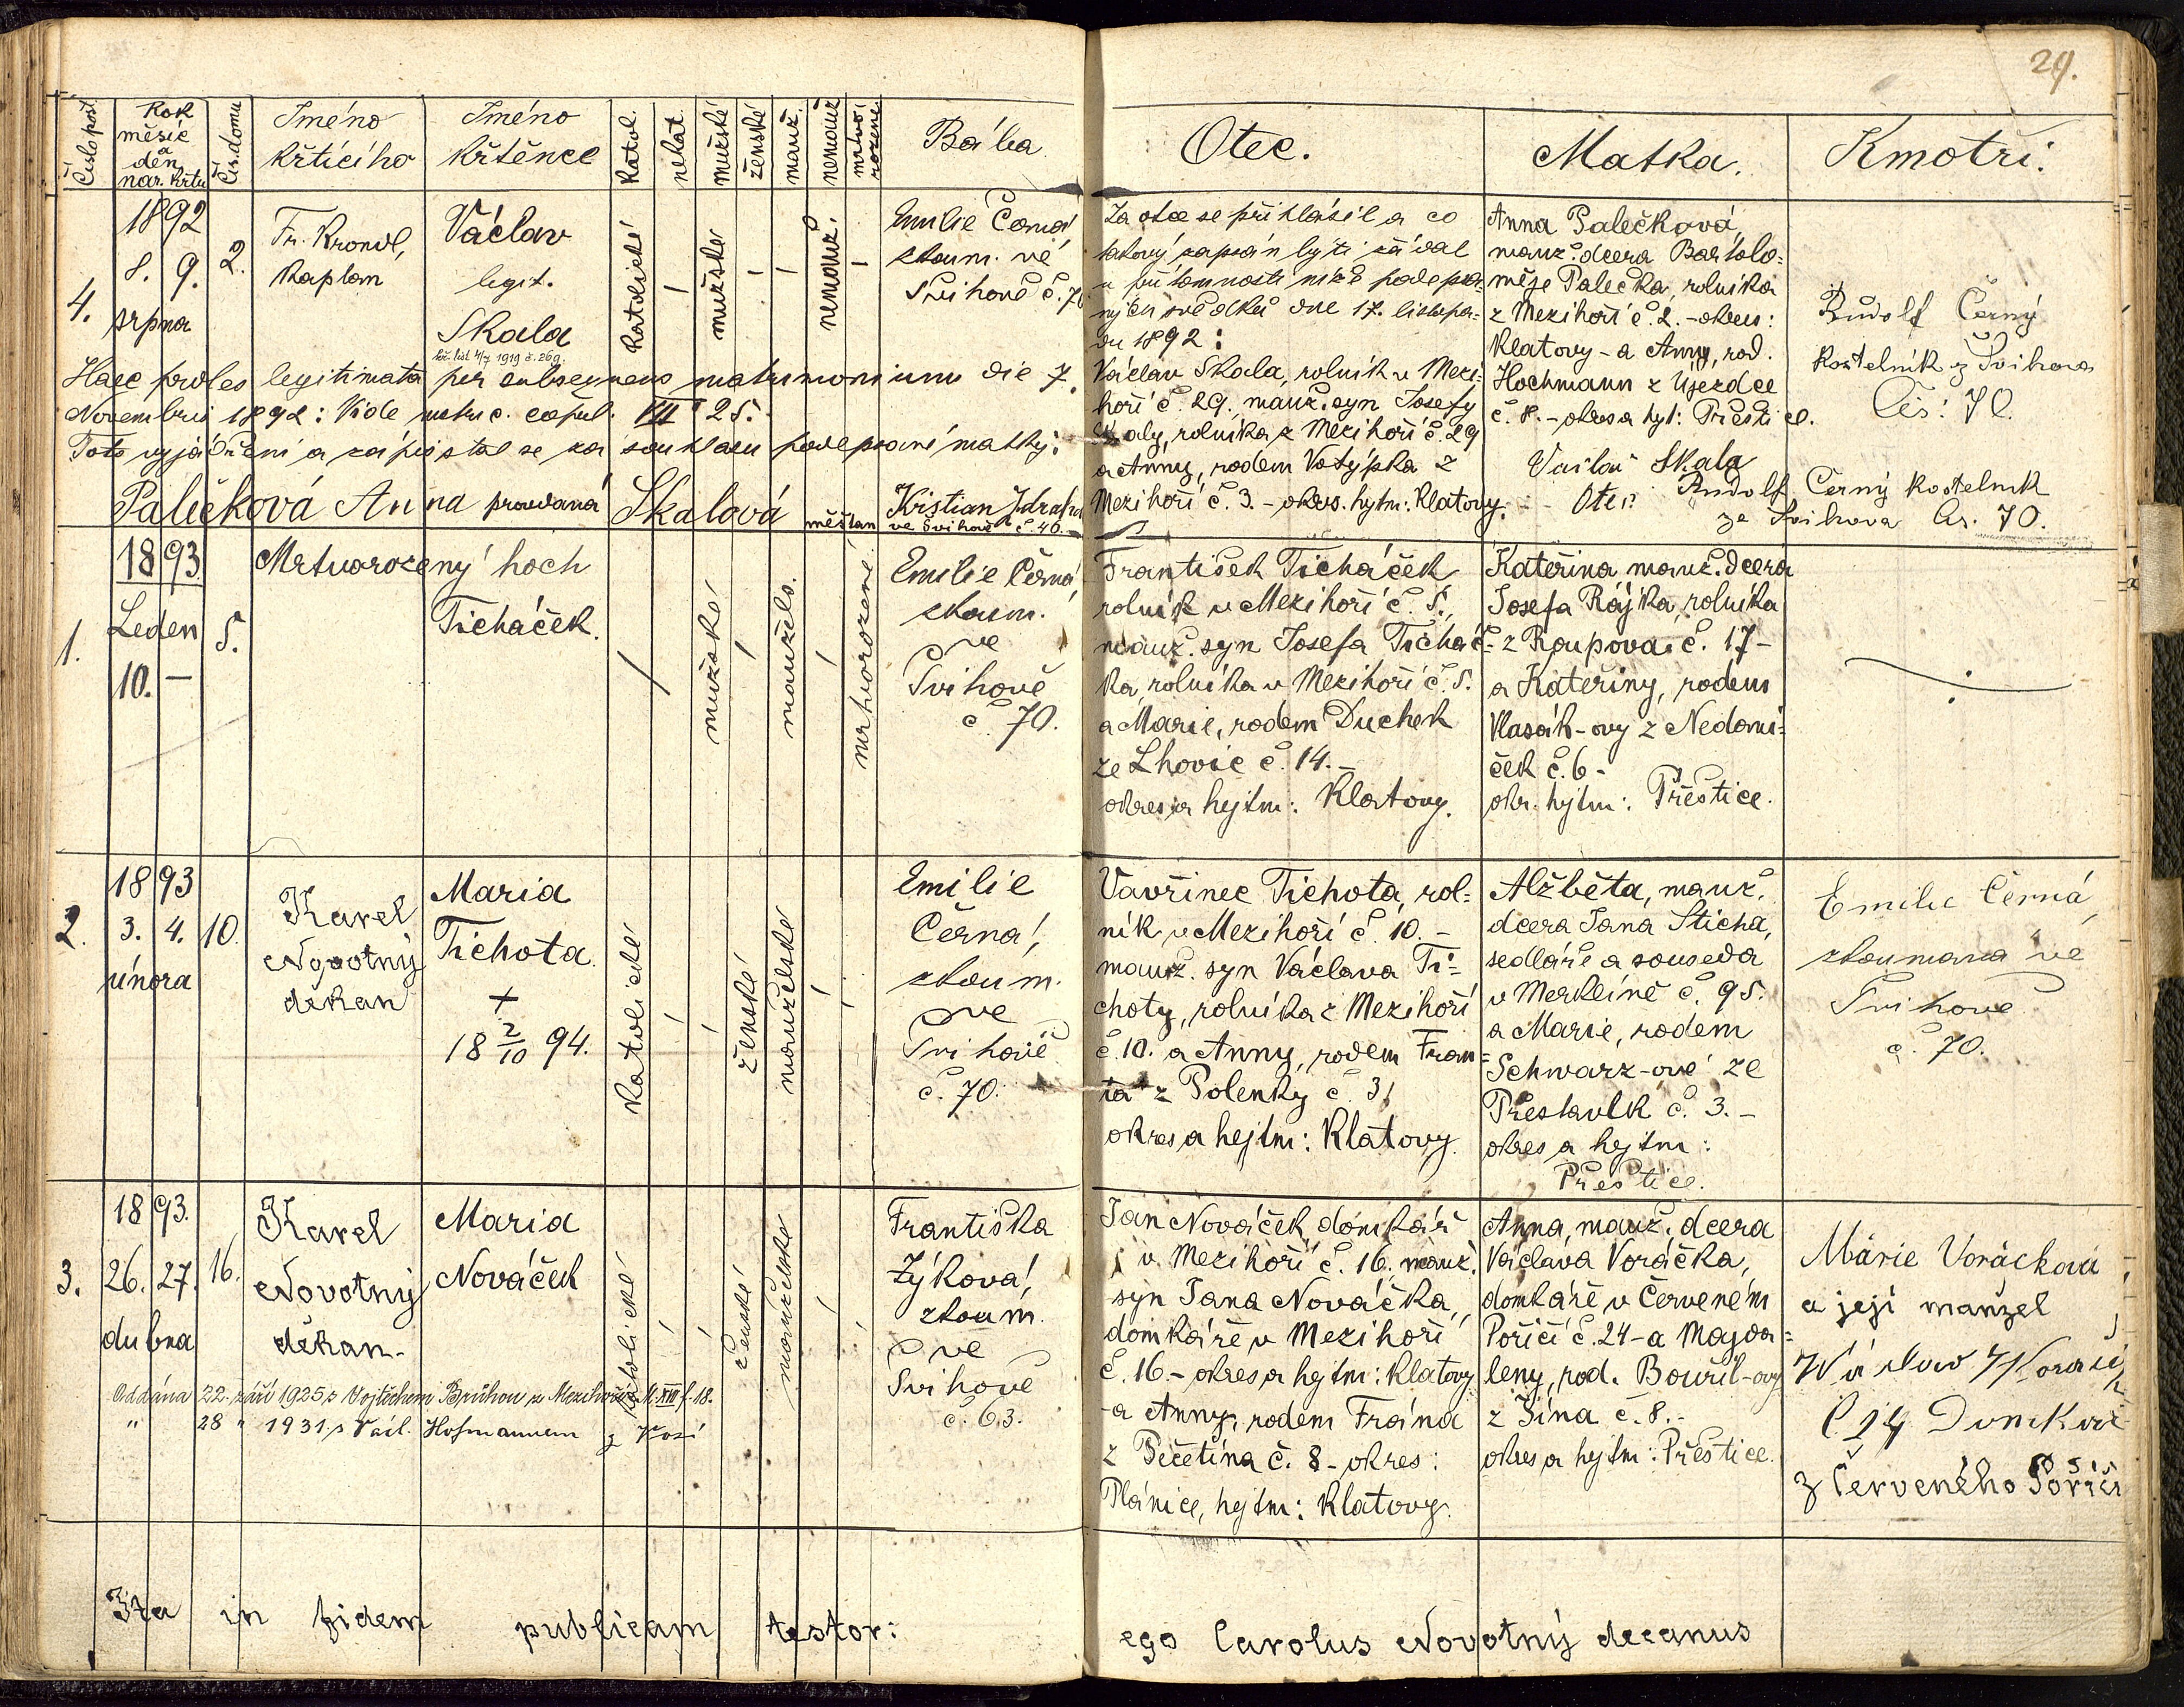 29.
Číslo pošt.
Rok měsíc a den nar. křtu
Čís. domu
Jméno křtícího
Jméno křtěnce
katol.
nekat.
mužské
ženské
manž.
nemanž.
mrtvorozené
Bába
Otec.
Matka.
Kmotři.
4.
1892
8. 9.
srpna
2.
Fr. Kronvl,
kaplan
Václav
legit.
Skala
kř. list 4/7 1919 č. 269.
katolické
mužské
nemanž.
Emilie Černá
zkoum. ve
Švihově č. 70
Haec proles legitimata per subsequens matrimonium die 7.
Novembris 1892: Vide matric. copul. VII 25.
Toto vyjádření a zápis stal se za souhlasu podepsané matky:
Palečková Anna provdaná Skalová
měšťan
Kristian Zdraha
ve Švihově č. 40.
Za otce se přihlásil a co
takový zapsán býti žádal
v přítomnosti níže podepsa-
ných svědků dne 17. listopa-
du 1892:
Václav Skala, rolník v Mezi-
hoří č. 29, manž. syn Josefa
Skaly, rolníka z Mezihoří č. 29
a Anny, rodem Votýpka z
Mezihoří č. 3. - okres. hejtm: Klatovy.
Anna Palečková,
manž. dcera Bartolo-
měje Palečka, rolníka
z Mezihoří č. 2. - okres:
Klatovy - a Anny, rod.
Hochmann z Újezdce
č. 8. - okres a hejt: Přeštice.
Václav Skala
Otec
Rudolf Černý
kostelník z Švihova
Čís: 70.
Rudolf Černý kostelník
ze Švihova čís. 70.
1.
1893
Leden
10. -
5.
Mrtvorozený hoch
Ticháček.
mužské
manžels.
mrtvorozené
Emilie Černá
zkoum.
ve
Švihově
č. 70.
František Ticháček
rolník v Mezihoří č. 5.,
manž. syn Josefa Ticháč-
ka, rolníka v Mezihoří č. 5.
a Marie, rodem Duchek
ze Lhovic č. 14. -
okres a hejtm: Klatovy.
Kateřina, manž. dcera
Josefa Rájka, rolníka
z Roupova č. 17 -
a Kateřiny, rodem
Vlasák-ovy z Nedani-
ček č. 6 -
okr. hejtm: Přeštice.
2.
1893
3. 4.
února
10.
Karel
Novotný
děkan
Maria
Tichota.
+
18 2/10 94.
katolické
ženské
manželské
Emilie
Černá,
zkoum.
ve
Švihově
č. 70.
Vavřinec Tichota, rol-
ník v Mezihoří č. 10. -
manž. syn Václava Ti-
choty, rolníka z Mezihoří
č. 10. a Anny, rodem Fran-
ta z Polenky č. 31
okres a hejtm: Klatovy.
Alžběta, manž.
dcera Jana Sticha,
sedláře a souseda
v Merklíně č. 95.
a Marie, rodem
Schwarz-ové ze
Přestavlk č. 3. -
okres a hejtm:
Přeštice.
Emilie Černá,
zkoumaná ve
Švihově
č. 70.
3.
1893.
26. 27.
dubna
16.
Karel
Novotný
děkan.
Maria
Nováček
katolické
ženské
manželské
Františka
Zýková,
zkoum.
ve
Švihově
č. 63.
Oddána 22. září 1925 s Vojtěchem Brůhou z Mezihoří M. XIII f. 18.
" 28 " 1931 s Václ. Hofmannem z Kosi
Jan Nováček, domkář
v Mezihoří č. 16. manž.
syn Jana Nováčka,
domkáře v Mezihoří
č. 16 - okres a hejtm: Klatovy
- a Anny, rodem Frána
z Pečetína č. 8 - okres:
Plánice, hejtm: Klatovy.
Anna, manž. dcera
Václava Voráčka,
domkáře v Červeném
Poříčí č. 24 - a Magda-
leny, rod. Bouřil-ovy
z Jína č. 8. -
okres a hejtm: Přeštice.
Márie Voráčková
a její manžel
Václav Voráček
č 24 Domkář
z Červeného Poříčí
Ita in fidem publicam testor:
ego Carolus Novotný decanus